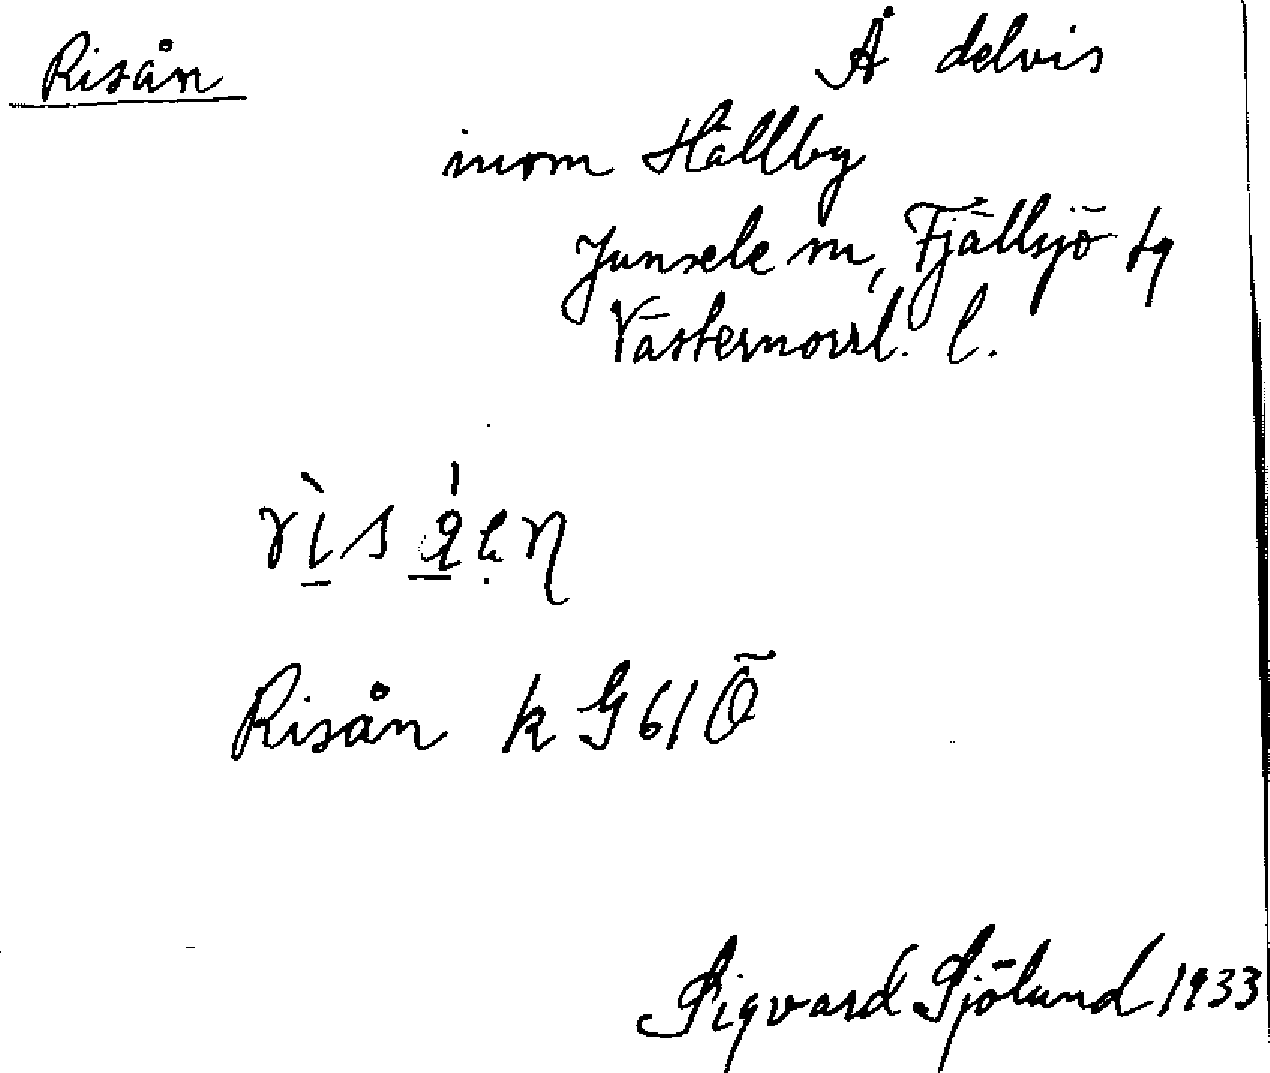 Risån
Å delvis
inom Hällby
Junsele sn, Fjällsjö tg
Västernorrl. l.
Risån k G61Ö
Sigvard Sjölund 1933